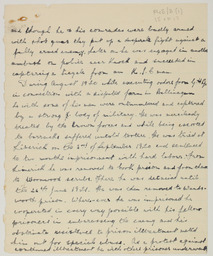 and though he & his comrades were badly armed
with shot guns they put up a desperate fight against a
fully armed enemy, later on he was engaged in another
ambush on police near and succeeded in
capturing a bicycle from an R.I.C. man
During August 1920 while executing orders from G.H.Q.
in connection with a disputed farm in Ballingarry
he with some of his men were outnumbered and captured
by a strong force of military. He was severely
treated by the crown forces and while being conveyed
to barracks suffered untold tortures. He was tried at
Limerick on the of September 1920 and sentenced
to two months imprisonment with hard labour. From
Limerick he was removed to Cork prison and from thence
to Wormwood scrubs where he was detained until
the 26th June 1921. He was then removed to Wands-
worth prison. Wherever he was imprisoned he
cooperated in every way possible with his fellow
prisoners in embarrassing the enemy and his
obstinate resistance to prison illtreatment
him out for special abuse. As a protest against
continued illtreatment he with other prisoners